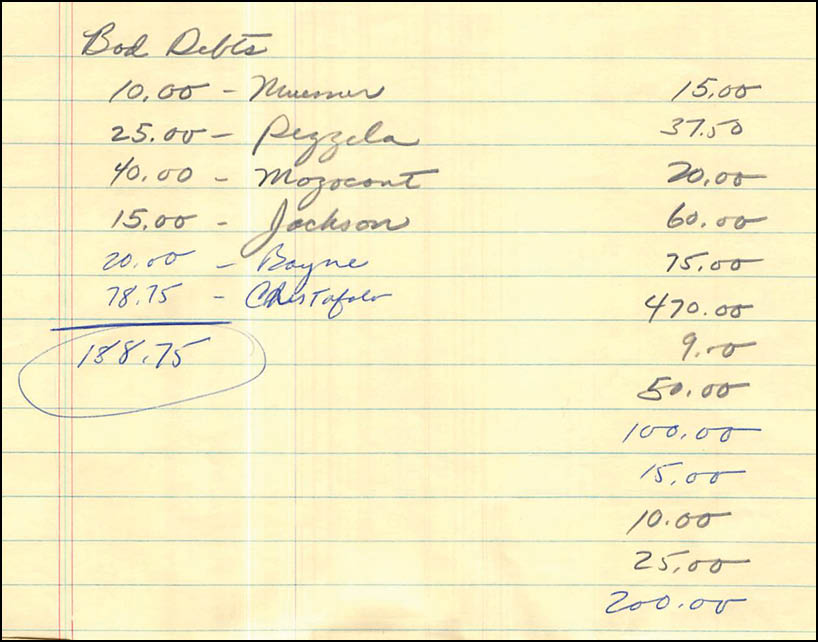 Bad Debts
10.00 - 15.00
25.00 - Pezzela 37.50
40.00 - Mozocont 20.00
15.00 - Jackson 60.00
20.00 - Bayne 75.00
78.75 - 470.00
188.75 9.00
50.00
100.00
15.00
10.00
25.00
200.00